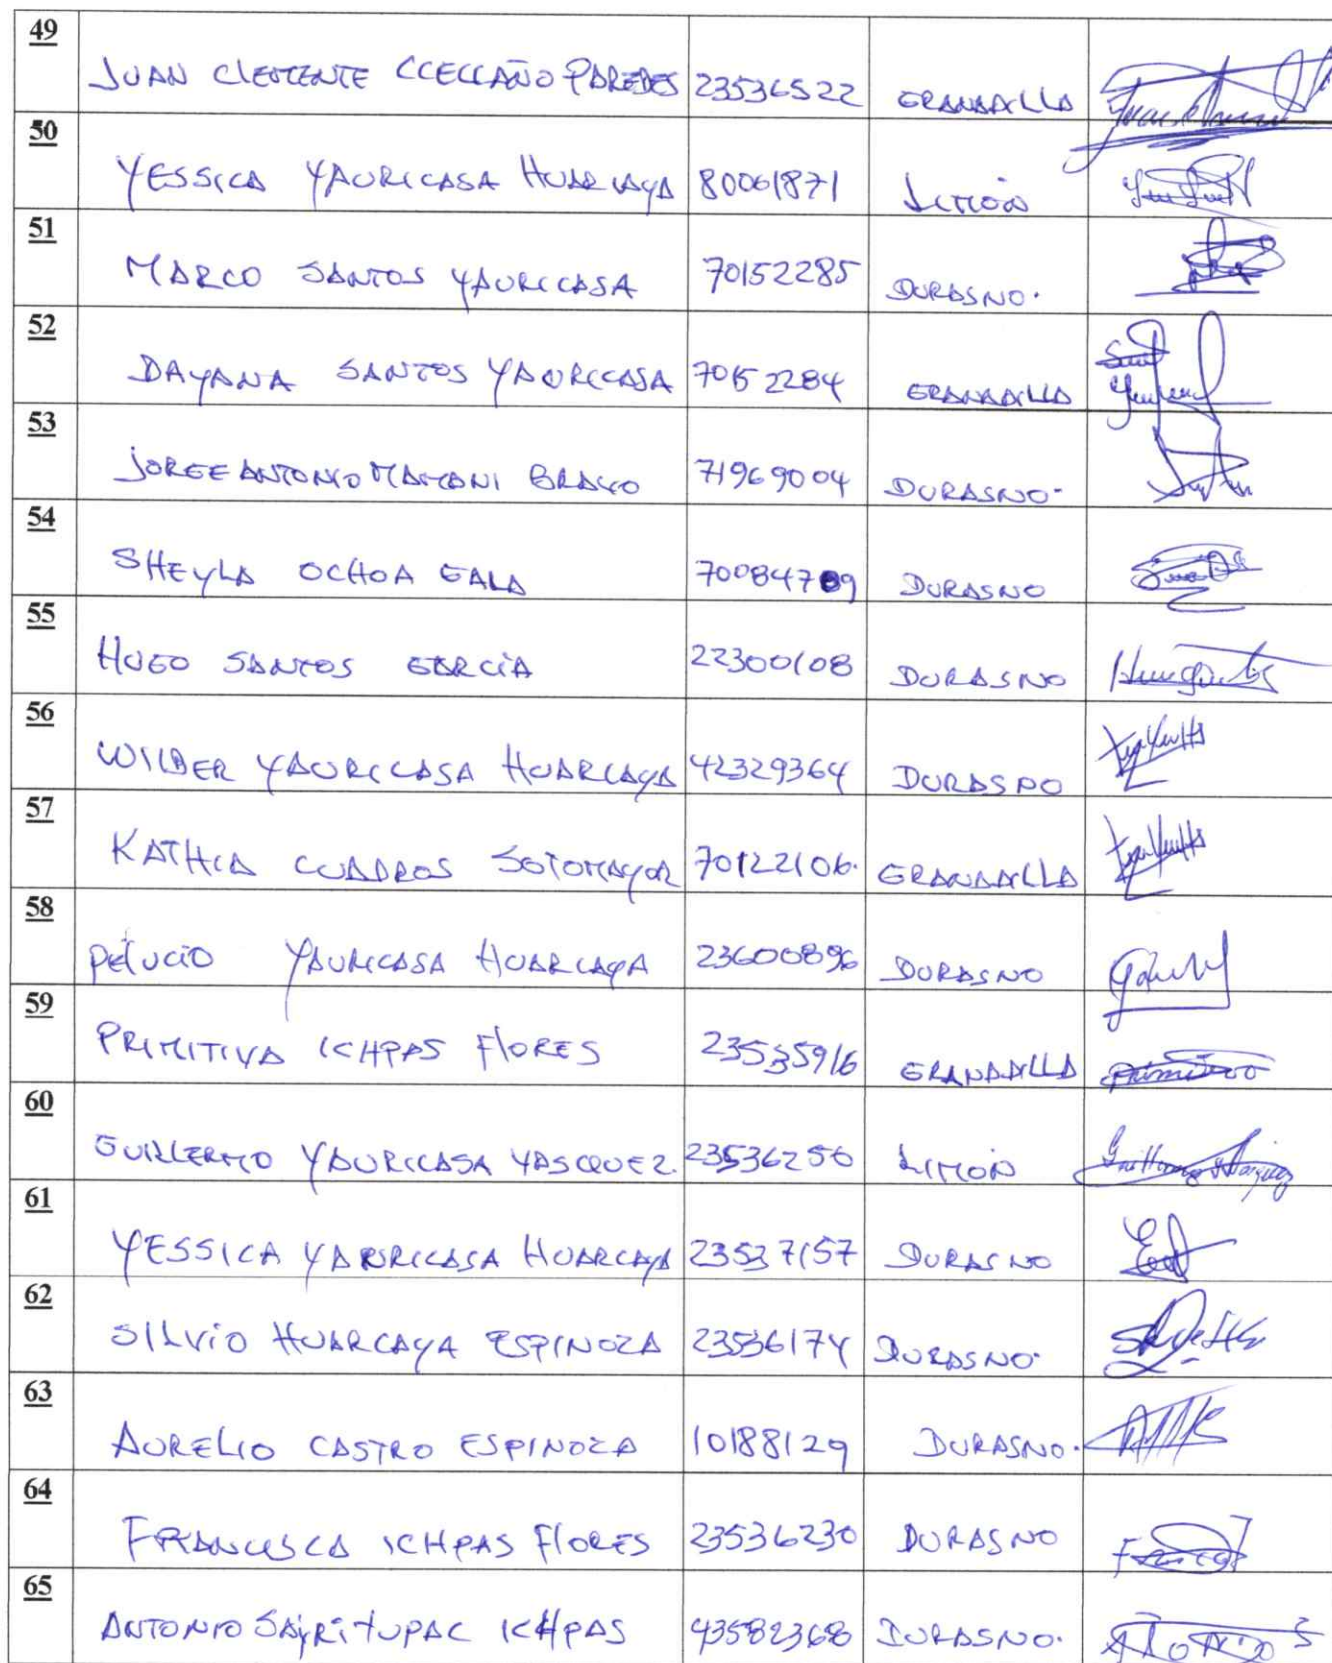 49 JUAN CLEMENTE CCECCAÑO PAREDES 23536522 GRANADILLA
50 YESSICA YAURICASA HUARCAYA 80061871 LIMÓN
51 MARCO SANTOS YAURICASA 70152285 DURASNO.
52 DAYANA SANTOS YAURICASA 70152284 GRANADILLA
53 JORGE ANTONIO MAMANI BRAVO 71969004 DURASNO.
54 SHEYLA OCHOA GALA DURASNO
55 HUGO SANTOS GARCÍA 22300108 DURASNO
56 WILBER YAURICASA HUARCAYA 42329364 DURASNO
57 KATHIA CUADROS SOTOMAYOR 70122106. GRANADILLA
58 PELUCIO YAURICASA HUARCAYA 23600896 DURASNO
59 PRIMITIVA ICHPAS FLORES 23535916 GRANADILLA
60 GUILLERMO YAURICASA VASQUEZ. 23536250 LIMÓN
61 YESSICA YAURICASA HUARCAYA 23527157 DURASNO
62 SILVIO HUARCAYA ESPINOZA 23536174 DURASNO.
63 AURELIO CASTRO ESPINOZA 10188129 DURASNO.
64 FRANCISCA ICHPAS FLORES 23536230 DURASNO
65 ANTONIO SAYRITUPAC ICHPAS 43582368 DURASNO.